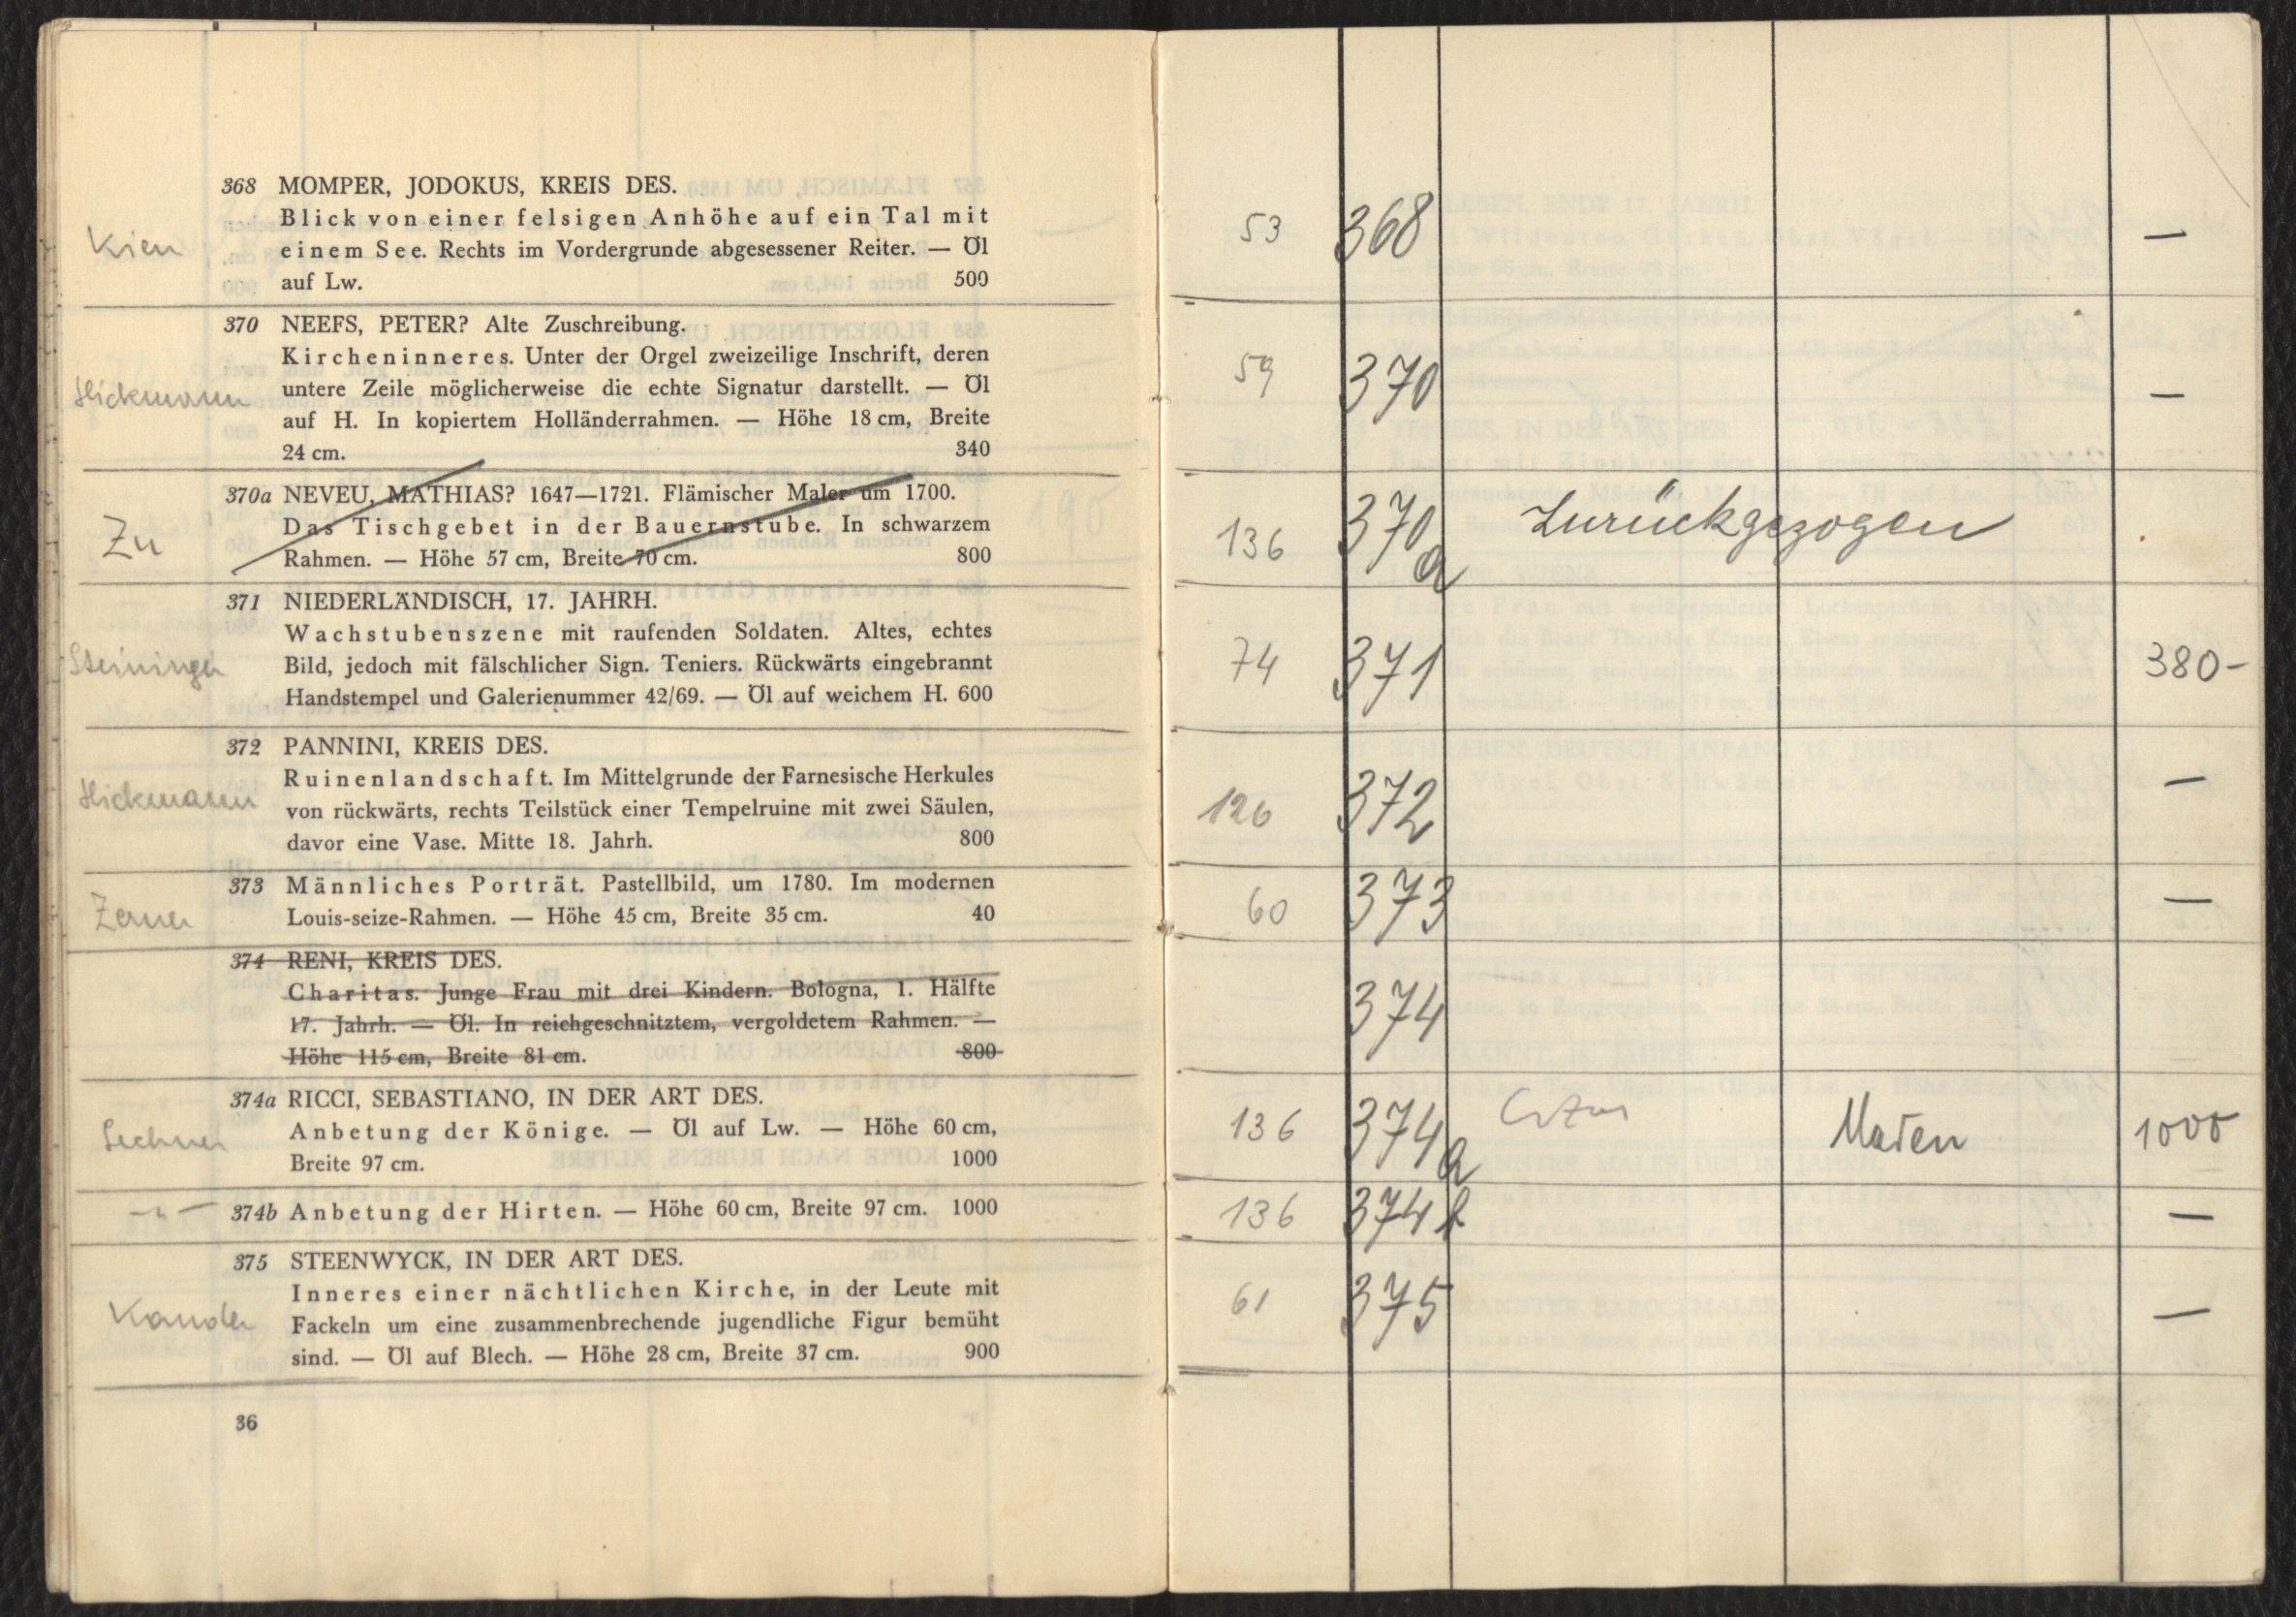 368 MOMPER, JODOKUS, KREIS DES.
Blick von einer felsigen Anhöhe auf ein Tal mit
Kien
einem See. Rechts im Vordergrunde abgesessener Reiter. — Öl
auf Lw. 500
370 NEEFS, PETER? Alte Zuschreibung.
Kircheninneres. Unter der Orgel zweizeilige Inschrift, deren
Hickmann
untere Zeile möglicherweise die echte Signatur darstellt. — Öl
auf H. In kopiertem Holländerrahmen. — Höhe 18 cm, Breite
24 cm. 340
370a NEVEU, MATHIAS? 1647—1721. Flämischer Maler um 1700.
Das Tischgebet in der Bauernstube. In schwarzem
Zu
Rahmen. — Höhe 57 cm, Breite 70 cm. 800
371 NIEDERLÄNDISCH, 17. JAHRH.
Wachstubenszene mit raufenden Soldaten. Altes, echtes
Steininger
Bild, jedoch mit fälschlicher Sign. Teniers. Rückwärts eingebrannt
Handstempel und Galerienummer 42/69. — Öl auf weichem H. 600
372 PANNINI, KREIS DES.
Ruinenlandschaft. Im Mittelgrunde der Farnesische Herkules
Hickmann
von rückwärts, rechts Teilstück einer Tempelruine mit zwei Säulen,
davor eine Vase. Mitte 18. Jahrh. 800
373 Männliches Porträt. Pastellbild, um 1780. Im modernen
Zerner
Louis-seize-Rahmen. — Höhe 45 cm, Breite 35 cm. 40
374 RENI, KREIS DES.
Charitas. Junge Frau mit drei Kindern. Bologna, 1. Hälfte
17. Jahrh. — Öl. In reichgeschnitztem, vergoldetem Rahmen. —
Höhe 115 cm, Breite 81 cm. 800
374a RICCI, SEBASTIANO, IN DER ART DES.
Lechner
Anbetung der Könige. — Öl auf Lw. — Höhe 60 cm,
Breite 97 cm. 1000
-"- 374b Anbetung der Hirten. — Höhe 60 cm, Breite 97 cm. 1000
375 STEENWYCK, IN DER ART DES.
Inneres einer nächtlichen Kirche, in der Leute mit
Fackeln um eine zusammenbrechende jugendliche Figur bemüht
sind. — Öl auf Blech. — Höhe 28 cm, Breite 37 cm. 900
36
53 368 —
59 370 —
136 370a Zurückgezogen
74 371 380-
126 372 —
60 373 —
374
136 374a 1000
136 374b —
61 375 —